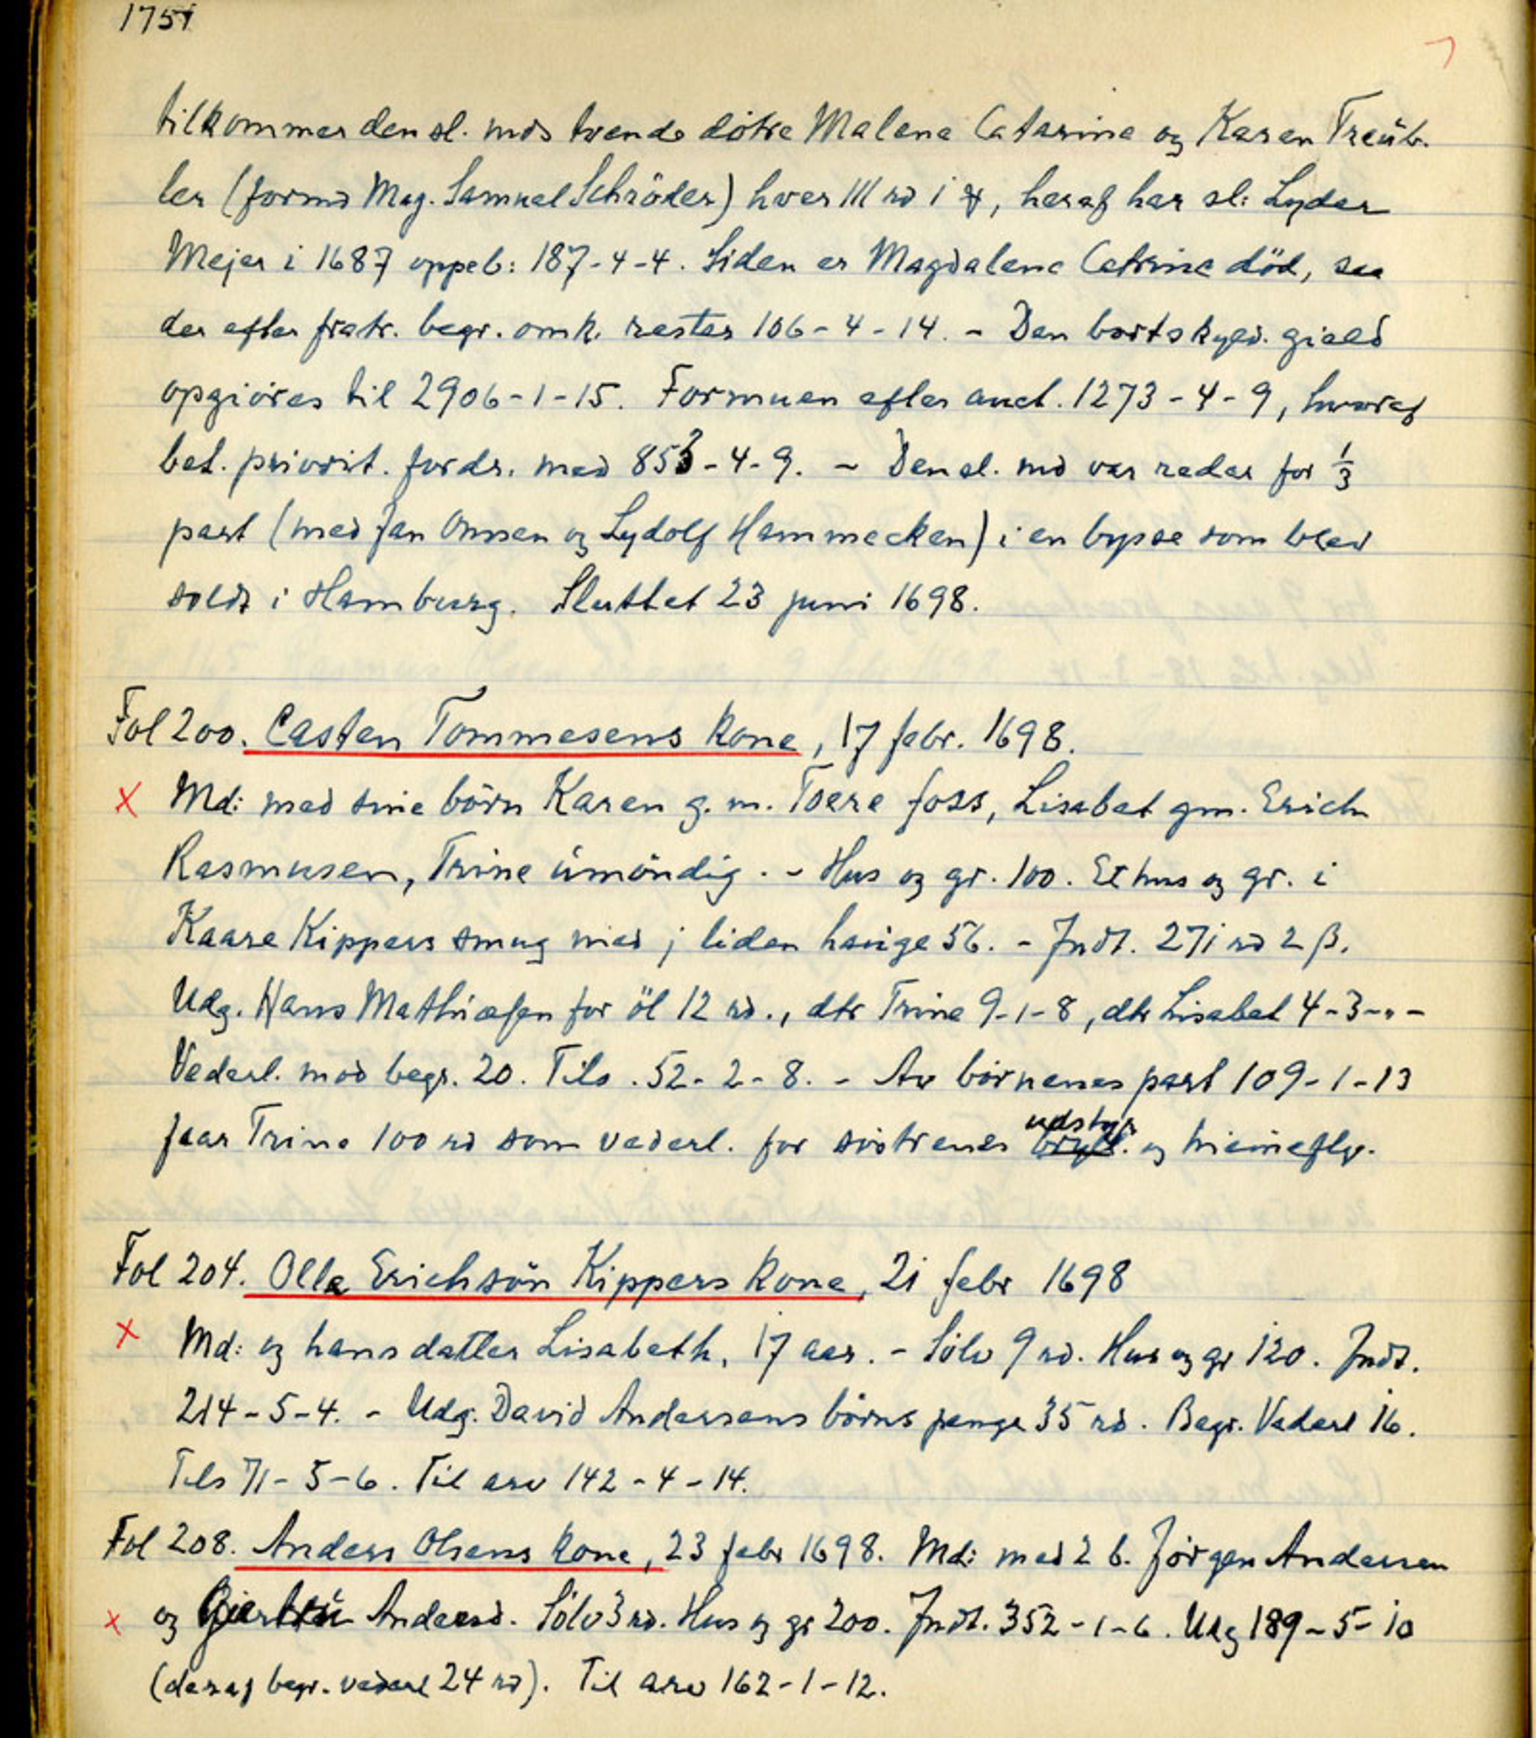 1751
tilkommer den sl. mds tvende døtre Malene Catarine og Karen Treüb-
ler (formd Mag. Samuel Schröder) hver 111 rd i &, heraf har sl: Lyder
Mejer i 1687 oppeb: 187-4-4. Siden er Magdalene Catrine död, saa
der efter fratr. begr. omk. rester 106-4-14. - Den bortskyld. gield
opgiöres til 2906-1-15. Formuen efter auct. 1273-4-9, hvoraf
bet. priorit. fordr. med 853-4-9. - Den sl. md var reder for 1/3
part (med Jan Onsen og Lydolf Hammecken) i en bysse som blev
soldt i Hamburg. Sluttet 23 juni 1698.
Fol 200. Casten Tommesens kone, 17 febr. 1698.
x Md: med sine börn Karen g. m. Toere foss, Lisabet gm. Erich
Rasmusen, Trine ümöndig. - Hus og gr. 100. Et hus og gr. i
Kaare Kippers smug med j liden hauge 56. - Jndt. 271 rd 2 β.
Udg. Hans Mathiæsen for öl 12 rd., dtr Trine 9-1-8, dtr Lisabet 4-3-"-
Vederl. mod begr. 20. Tils. 52-2-8. - Av börnenes part 109-1-13
faar Trine 100 rd som vederl. for söstrenes udstyr og
Fol 204. Olle Erichsön Kippers kone, 21 febr 1698
x Md: og hans datter Lisabeth, 17 aar. - Sölv 9 rd. Hus og gr 120. Jndt.
214-5-4. - Udg. David Andersens börns penge 35 rd. Begr. Vederl 16.
Tils 71-5-6. Til arv 142-4-14.
Fol 208. Anders Olsens kone, 23 febr 1698. Md: med 2 b. Jörgen Andersen
x og Giertrü Andersd. Sölv 3 rd. Hus og gr 200. Jndt. 352-1-6. Udg 189-5-10
(deraf begr. vederl 24 rd). Til arv 162-1-12.